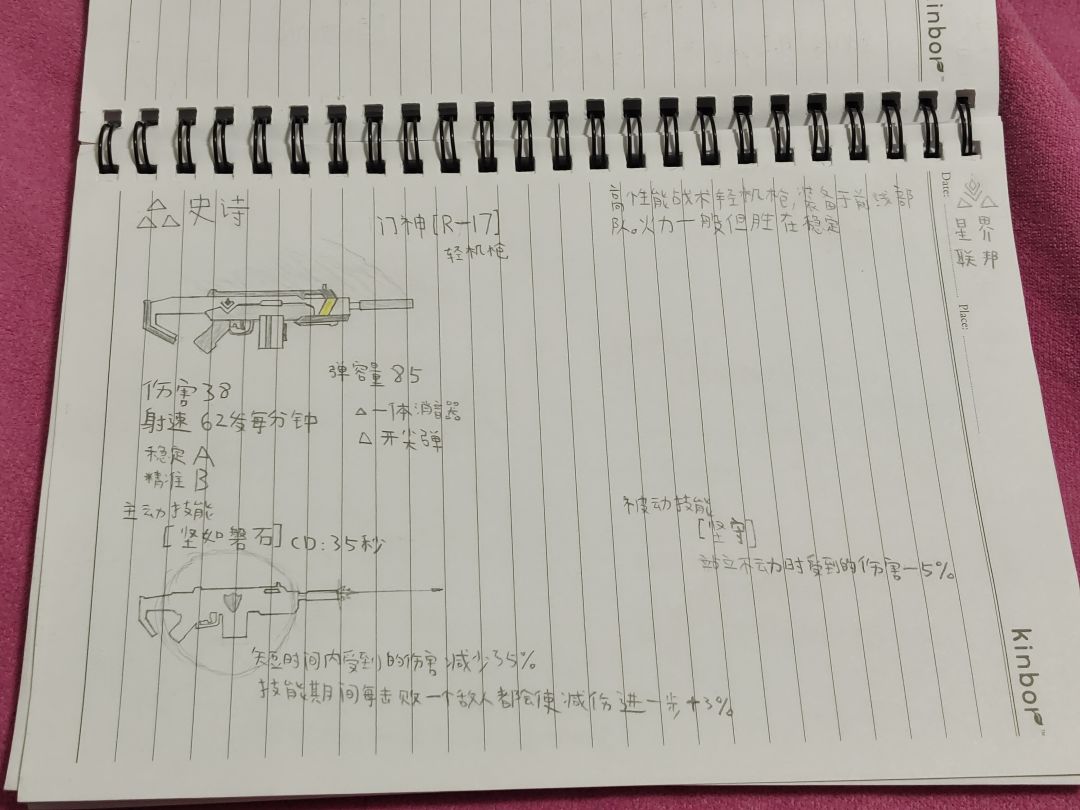 kinbor
Date:
史诗
门神[R-17]
轻机枪
高性能战术轻机枪,装备于前线部
队。火力一般但胜在稳定
星界
联邦
Place:
弹容量 85
伤害 38
射速 62发每分钟
△一体消音器
△ 开尖弹
稳定 A
精准 B
主动技能
[坚如磐石] CD:35秒
被动技能
[坚守]
站立不动时受到的伤害-5%
短时间内受到的伤害减少35%
技能期间每击败一个敌人都会使减伤进一步+3%
kinbor